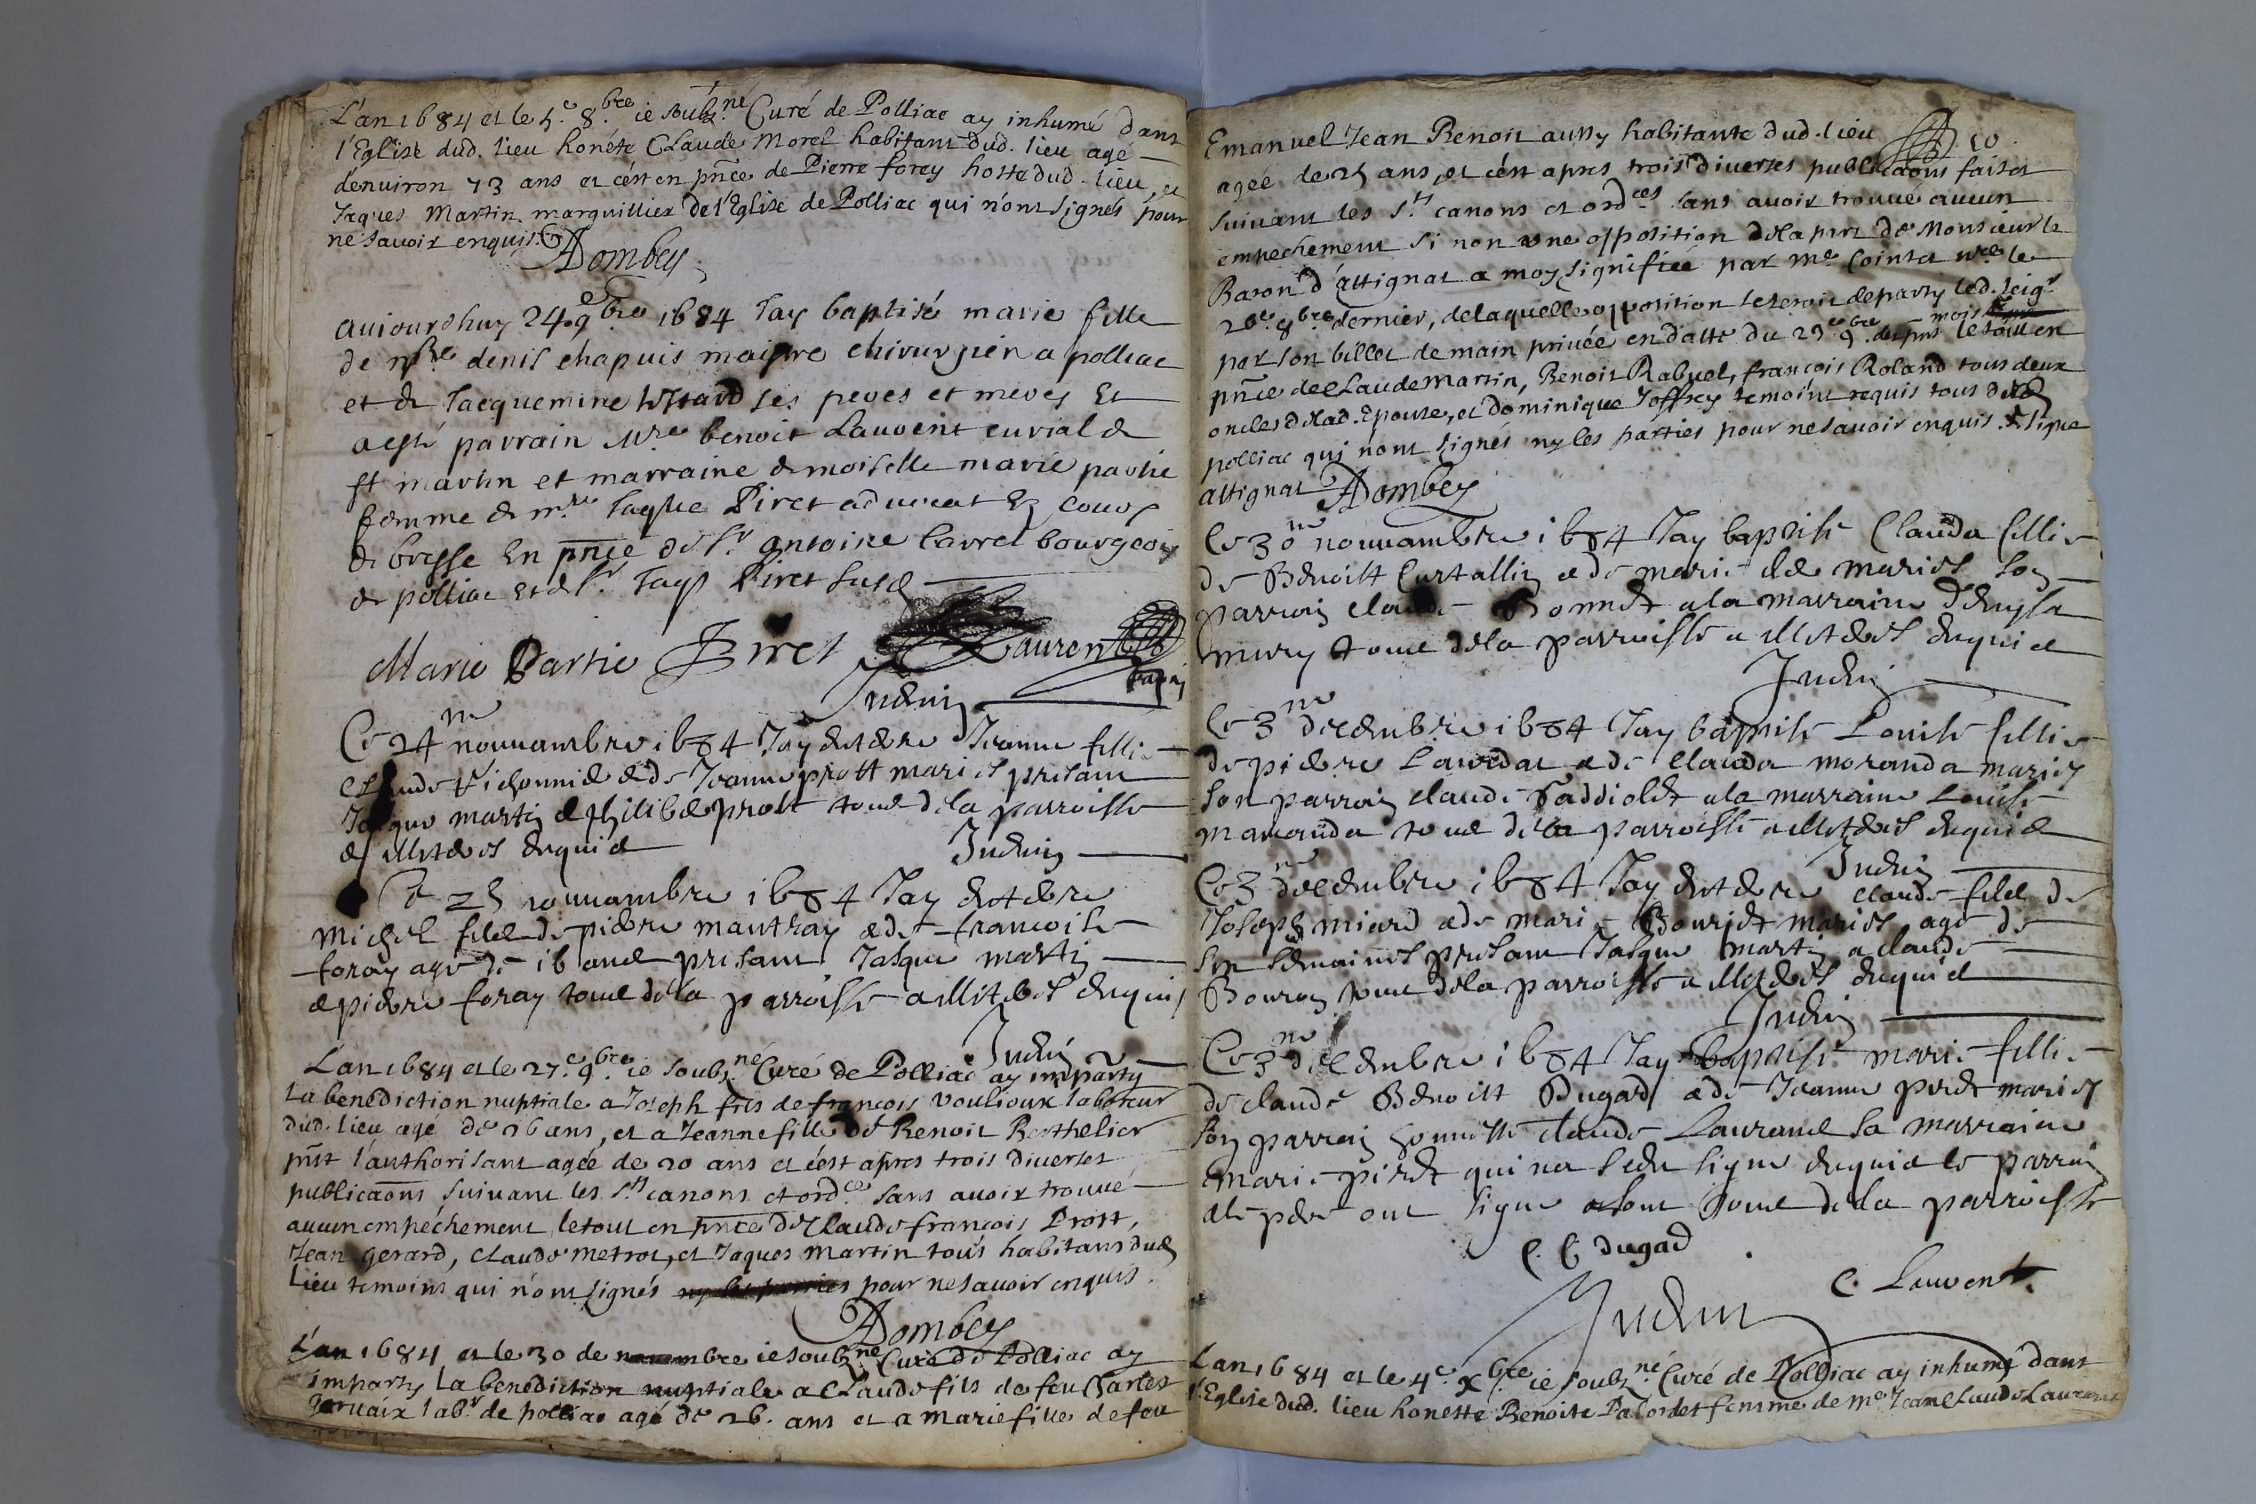 L'an 1684 et le 5.e 8.bre ie soubz.né Curé de Polliac ay inhumé dans
l'Eglise dud. lieu honéte CLaude Morel habitant dud. lieu agé
denuiron 73 ans et c'ést en pñce de Pierre forey hoste dud. lieu, et
Jaques Martin marguillier de l'Eglise de Polliac qui n'ont signés pour
ne sauoir enquis.
ADombey
auiourdhuy 24.e 9bre 1684 Jay baptisé marie fille
de denis chapuis maistre chirurgien a polliac
et de Jacquemine ses peres et meres Et
a esté parrain Mre benoit Lauvent curial de
st martin et marraine demoiselle marie partie
femme de m.re Jaque Piret aduocat Es cours
de bresse En pñce de s.r antoine Carrel bourgeois
de polliac et de s.r Jaq Piret susd
Marie Partie Piret Laurent
parrain
Judrin
Ce 24me nouuambre 1684 Jay Jeanne fillie
Claude et de Jeanne prost maries presant
Jasque martin e philibe prost toue de la parroisse
e
Judrin
Ce 25 nouuambre 1684 Jay
Michel file de pierre mautray e de francoise
foray age de 16 anes presant Jasque martin
e pierre foray toue de la parroisse enquis
Judrin
L'an 1684 et le 27.e 9.bre ie soubz.né Curé de Polliac ay imparty
la benediction nuptiale a Joseph fils de françois voulioux laboreur
dud. lieu agé de 26 ans, et a Jeanne fille de Benoit Berthelier
pñt l'authorisant agée de 20 ans et c'est apres trois diuerses
publicaõns suiuant les s.ts canons et ord.ces sans auoir trouué
aucun empéchement, le tout en pñce de Claude françois Prost,
Jean Gerard, Claude Metrot, et Jaques Martin tous habitans dud
lieu temoins qui n'ont signés ny les parties pour ne sauoir enquis.
ADombey
L'an 1684 et le 30 de nouembre ie soubz.né Curé de Polliac ay
imparty la benediction nuptiale a CLaude fils de feu Charles
Geruaix lab.r de polliac agé de 26. ans et a Marie fille de feu
Emanuel Jean Benoit aussy habitante dud. lieu 50.
agée de 25 ans, et c'ést apres trois diuerses publicaõns faites
suiuant les s.ts canons et ord.ces sans auoir trouué aucun
empechement si non une opposition de la part de Monsieur le
Baron d'attignat a moy signifiée par m.e Cointet le
26.e 9.bre dernier, de laquelle opposition se seroit departy led. seig.r
par son billet de main priuée en datte du 29.e 9.bre mois le tout en
pñce de CLaude Martin, Benoit Rabuel, françois Roland tous deux
oncles de lad. Epouse, et Dominique Joffrey temoins requis tous dud
polliac qui n'ont signés ny les parties pour ne sauoir enquis. signé
attignat ADombey
Ce 30me nouuambre 1684 Jay baptise Clauda fillie
de Benoist Curtallin e de marie maries son
parrain claude Bonnet e la marraine Denise
mury toue de la parroisse enquie
Judrin
Ce 3me decembre 1684 Jay baptise Louise fillie
de piere Laurdat e de Clauda moranda maries
son parrain claude e la marraine Louise
toue de la parroisse enquie
Judrin
Ce 3me decembre 1684 Jay claude file de
Joseph miard e de marie Bouriet maries age de
sin semaines presant Jasque martin e claude
Bouron toue de la parroisse enquie
Judrin
Ce 3me decembre 1684 Jay baptise marie fillie
de claude Benoist Dugad e de Jeanne peret maries
son parrain honneste claude Laurand sa marraine
marie piret qui na seeu signe enquie le parrain
e le pere ont signe e sont toue de la parroisse
C. b dugad
C. Lauvent.
Judrin
L'an 1684 et le 4.e Xbre ie soubz.né Curé de Polliac ay inhumé dans
l'Eglise dud. lieu honéste Benoite Palordet femme de M.e Jean CLaude Laurent